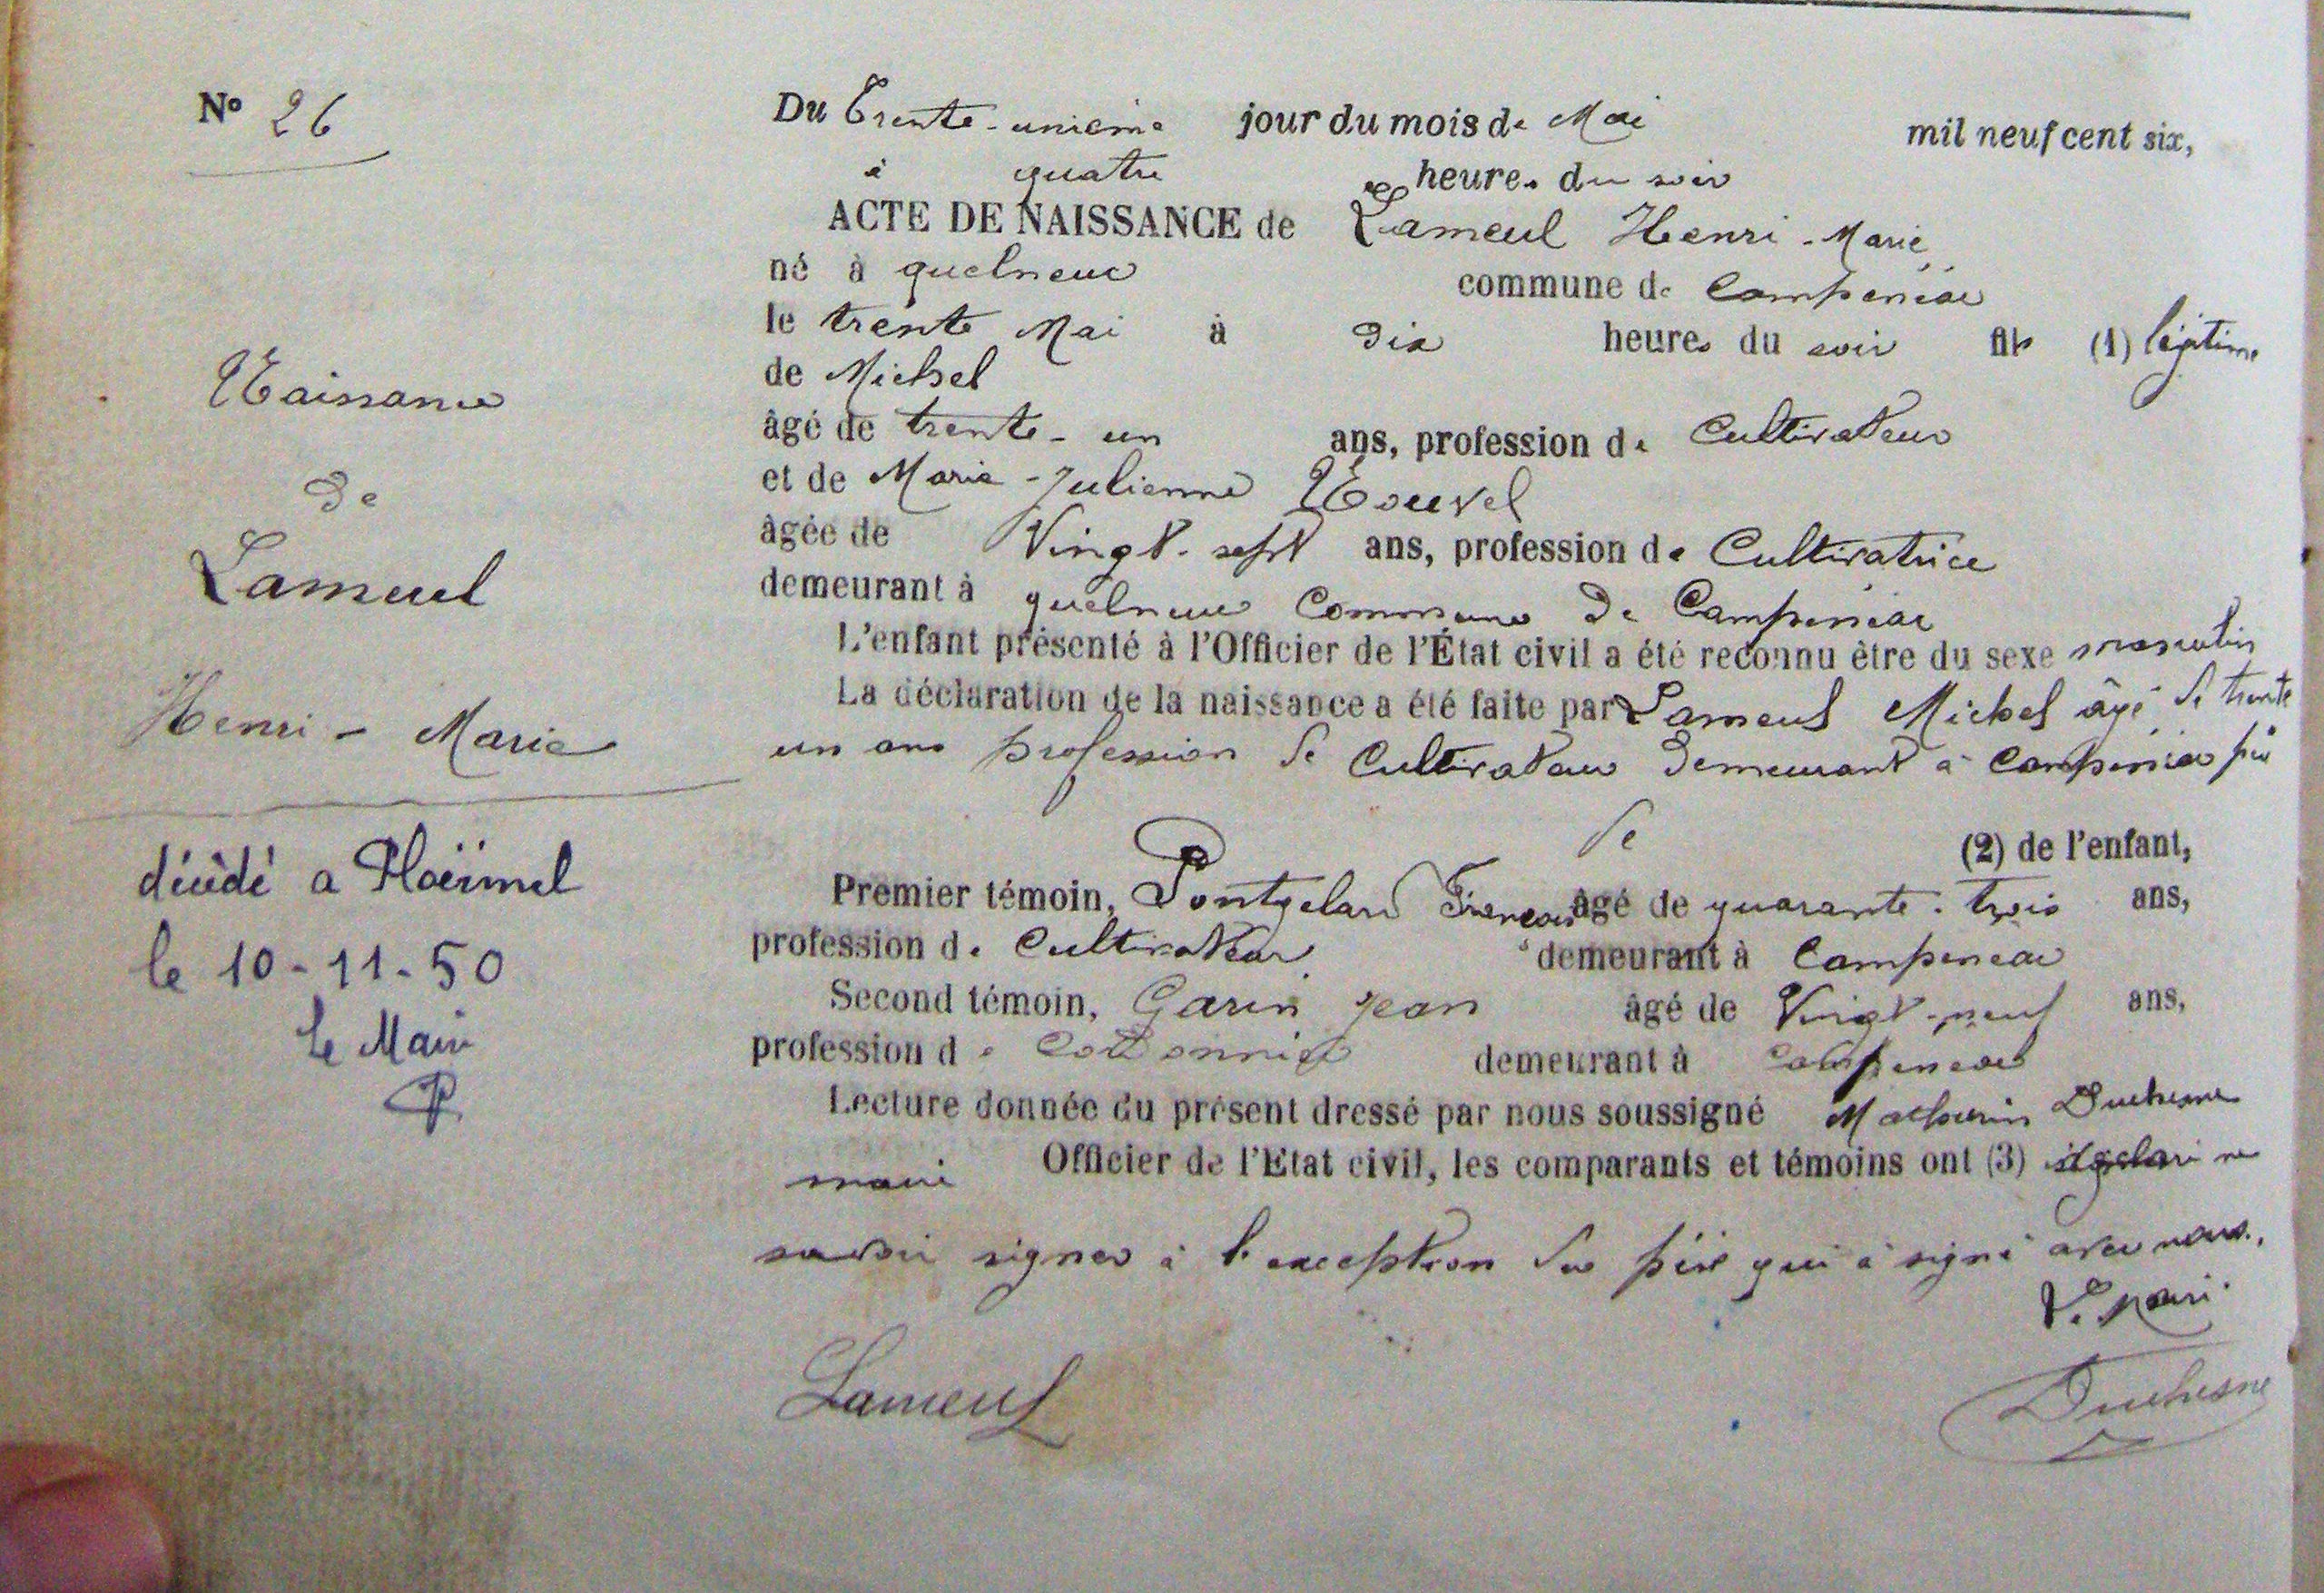 N° 26
Naissance
de
Lameul
Henri - Marie
décédé a Ploërmel
le 10-11-50
le Maire
Du Trente-unième jour du mois de Mai mil neuf cent six,
à quatre heures du soir
ACTE DE NAISSANCE de Lameul Henri-Marie
né à quelneuc commune de Campénéac
le trente Mai à dix heures du soir fils (1) légitime
de Michel
âgé de trente-un ans, profession de Cultivateur
et de Marie-Julienne Nouvel
âgée de Vingt-sept ans, profession de Cultivatrice
demeurant à quelneuc Commune de Campénéac
L'enfant présenté à l'Officier de l'État civil a été reconnu être du sexe masculin
La déclaration de la naissance a été faite par Lameul Michel âgé de trente
un ans profession de Cultivateur demeurant à Campénéac père
de (2) de l'enfant,
Premier témoin, Pontgelard François âgé de quarante-trois ans,
profession de Cultivateur demeurant à Campénéac
Second témoin, Garin Jean âgé de Vingt-neuf ans,
profession de Cordonnier demeurant à Campénéac
Lecture donnée du présent dressé par nous soussigné Mathurin Duchesne
maire Officier de l'Etat civil, les comparants et témoins ont (3) déclaré ne
savoir signer à l'exception du père qui a signé avec nous.
Le Maire
Lameul
Duchesne